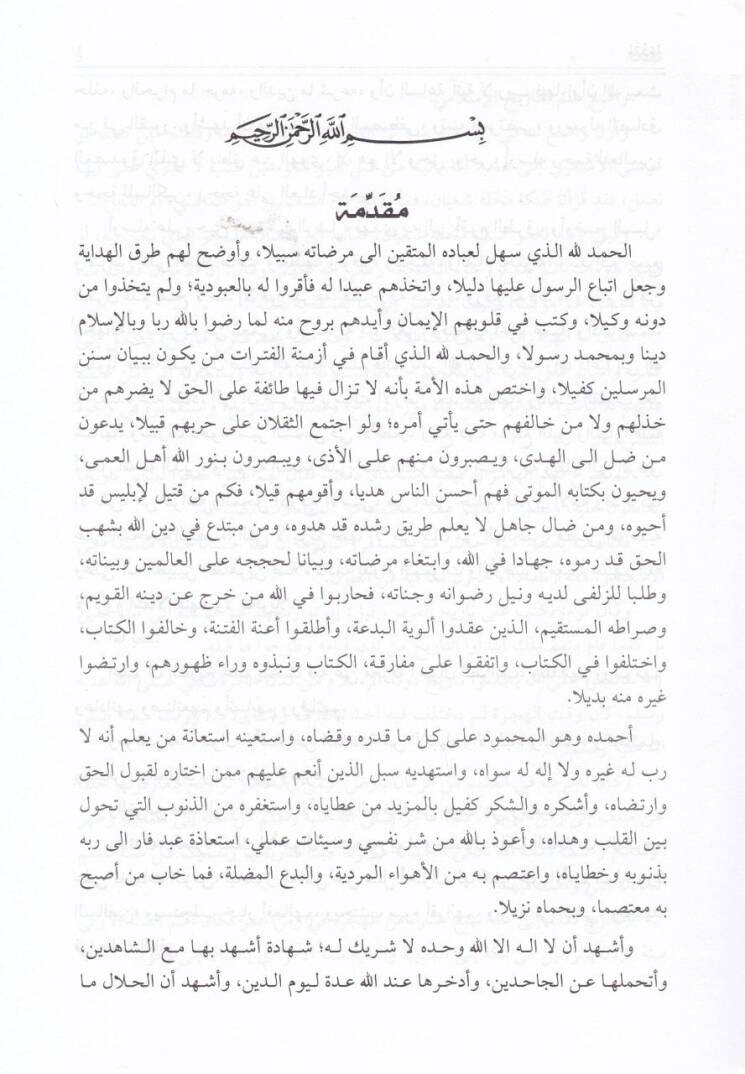 بسم الله الرحمن الرحيم
مُقَدِّمَة
الحمد لله الذي سهل لعباده المتقين الى مرضاته سبيلا، وأوضح لهم طرق الهداية
وجعل اتباع الرسول عليها دليلا، واتخذهم عبيدا له فأقروا له بالعبودية؛ ولم يتخذوا من
دونه وكيلا، وكتب في قلوبهم الإيمان وأيدهم بروح منه لما رضوا بالله ربا وبالإسلام
دينا وبمحمد رسولا، والحمد لله الذي أقام في أزمنة الفترات من يكون ببيان سنن
المرسلين كفيلا، واختص هذه الأمة بأنه لا تزال فيها طائفة على الحق لا يضرهم من
خذلهم ولا من خالفهم حتى يأتي أمره؛ ولو اجتمع الثقلان على حربهم قبيلا، يدعون
من ضل الى الهدى، ويصبرون منهم على الأذى، ويبصرون بنور الله أهل العمى،
ويحيون بكتابه الموتى فهم أحسن الناس هديا، وأقومهم قيلا، فكم من قتيل لإبليس قد
أحيوه، ومن ضال جاهل لا يعلم طريق رشده قد هدوه، ومن مبتدع في دين الله بشهب
الحق قد رموه، جهادا في الله، وابتغاء مرضاته، وبيانا لحججه على العالمين وبيناته،
وطلبا للزلفى لديه ونيل رضوانه وجناته، فحاربوا في الله من خرج عن دينه القويم،
وصراطه المستقيم، الذين عقدوا ألوية البدعة، وأطلقوا أعنة الفتنة، وخالفوا الكتاب،
واختلفوا في الكتاب، واتفقوا على مفارقة، الكتاب ونبذوه وراء ظهورهم، وارتضوا
غيره منه بديلا.
أحمده وهو المحمود على كل ما قدره وقضاه، واستعينه استعانة من يعلم أنه لا
رب له غيره ولا إله له سواه، واستهديه سبل الذين أنعم عليهم ممن اختاره لقبول الحق
وارتضاه، وأشكره والشكر كفيل بالمزيد من عطاياه، واستغفره من الذنوب التي تحول
بين القلب وهداه، وأعوذ بالله من شر نفسي وسيئات عملي، استعاذة عبد فار الى ربه
بذنوبه وخطاياه، واعتصم به من الأهواء المردية، والبدع المضلة، فما خاب من أصبح
به معتصما، وبحماه نزيلا.
وأشهد أن لا اله الا الله وحده لا شريك له؛ شهادة أشهد بها مع الشاهدين،
وأتحملها عن الجاحدين، وأدخرها عند الله عدة ليوم الدين، وأشهد أن الحلال ما